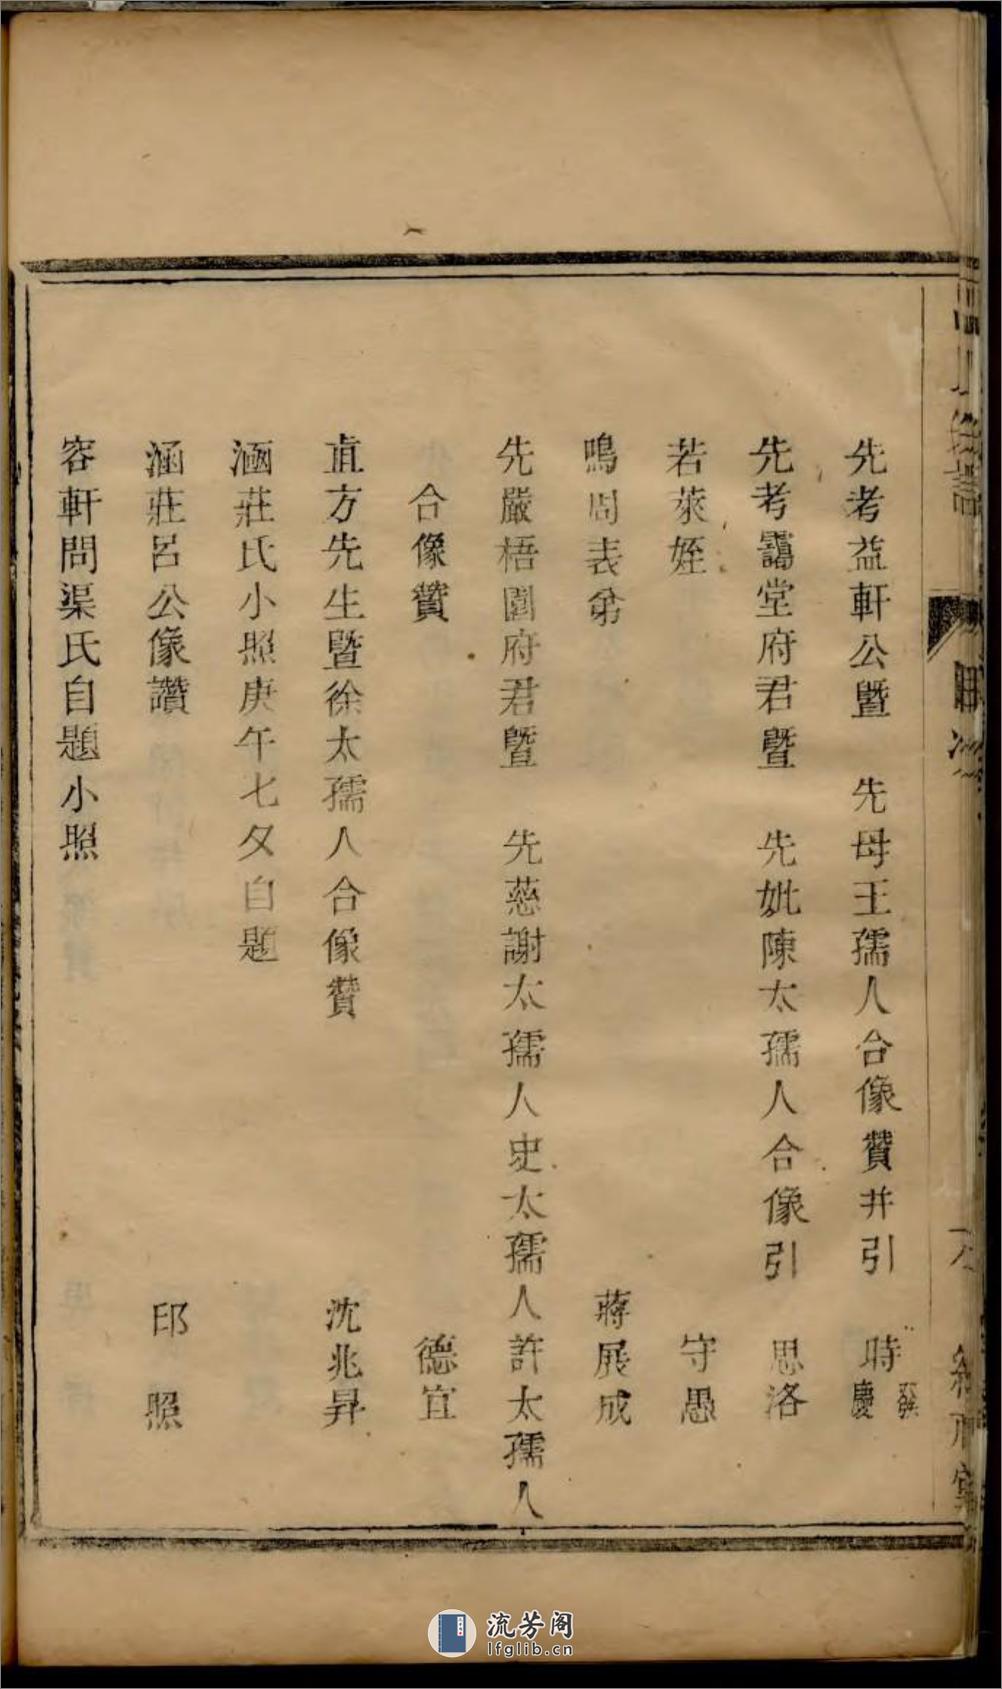 先考益軒公暨　先母王孺人合像贊并引　時發慶
先考靄堂府君暨　先妣陳太孺人合像引　思洛
若萊姪　守愚
鳴周表弟　蔣展成
先嚴梧園府君暨　先慈謝太孺人史太孺人許太孺人
合像贊　德宜
直方先生暨徐太孺人合像贊　沈兆昇
涵莊氏小照庚午七夕自題
涵莊呂公像讚　邱照
容軒問渠氏自題小照
流芳阁
lfglib.cn